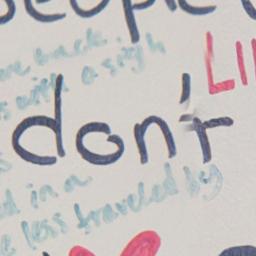 people
LI
back.
with a sigh
don't
in a
less traveled by